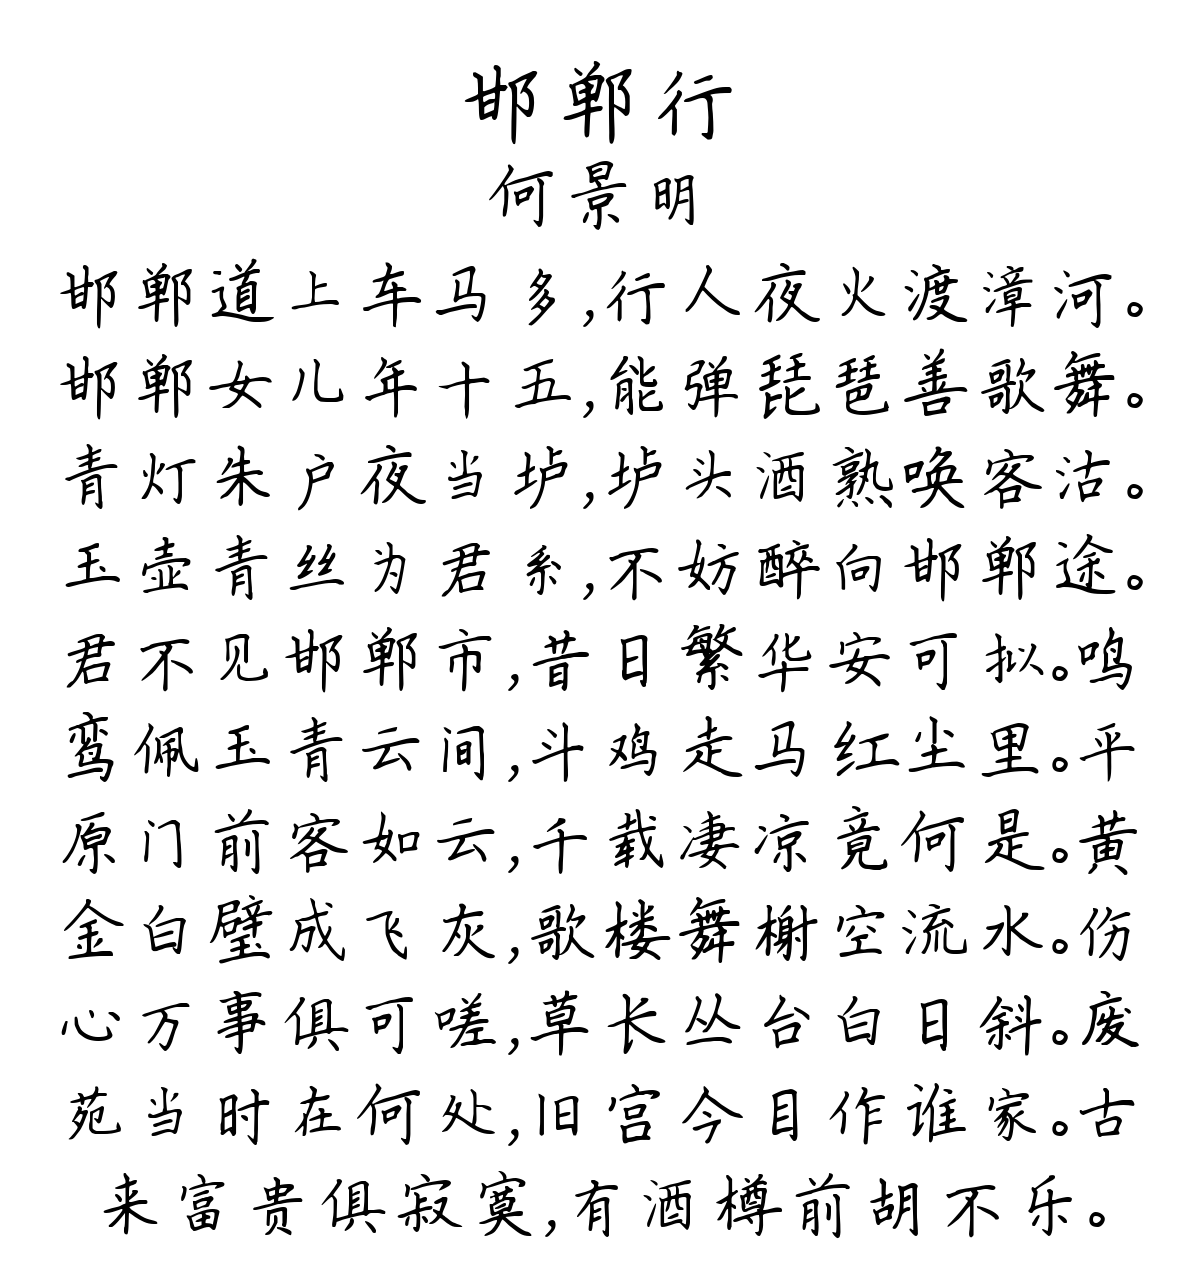 邯郸行
何景明
邯郸道上车马多,行人夜火渡漳河。
邯郸女儿年十五,能弹琵琶善歌舞。
青灯朱户夜当垆,垆头酒熟唤客沽。
玉壶青丝为君系,不妨醉向邯郸途。
君不见邯郸市,昔日繁华安可拟。鸣
鸾佩玉青云间,斗鸡走马红尘里。平
原门前客如云,千载凄凉竟何是。黄
金白璧成飞灰,歌楼舞榭空流水。伤
心万事俱可嗟,草长丛台白日斜。废
苑当时在何处,旧宫今目作谁家。古
来富贵俱寂寞,有酒樽前胡不乐。